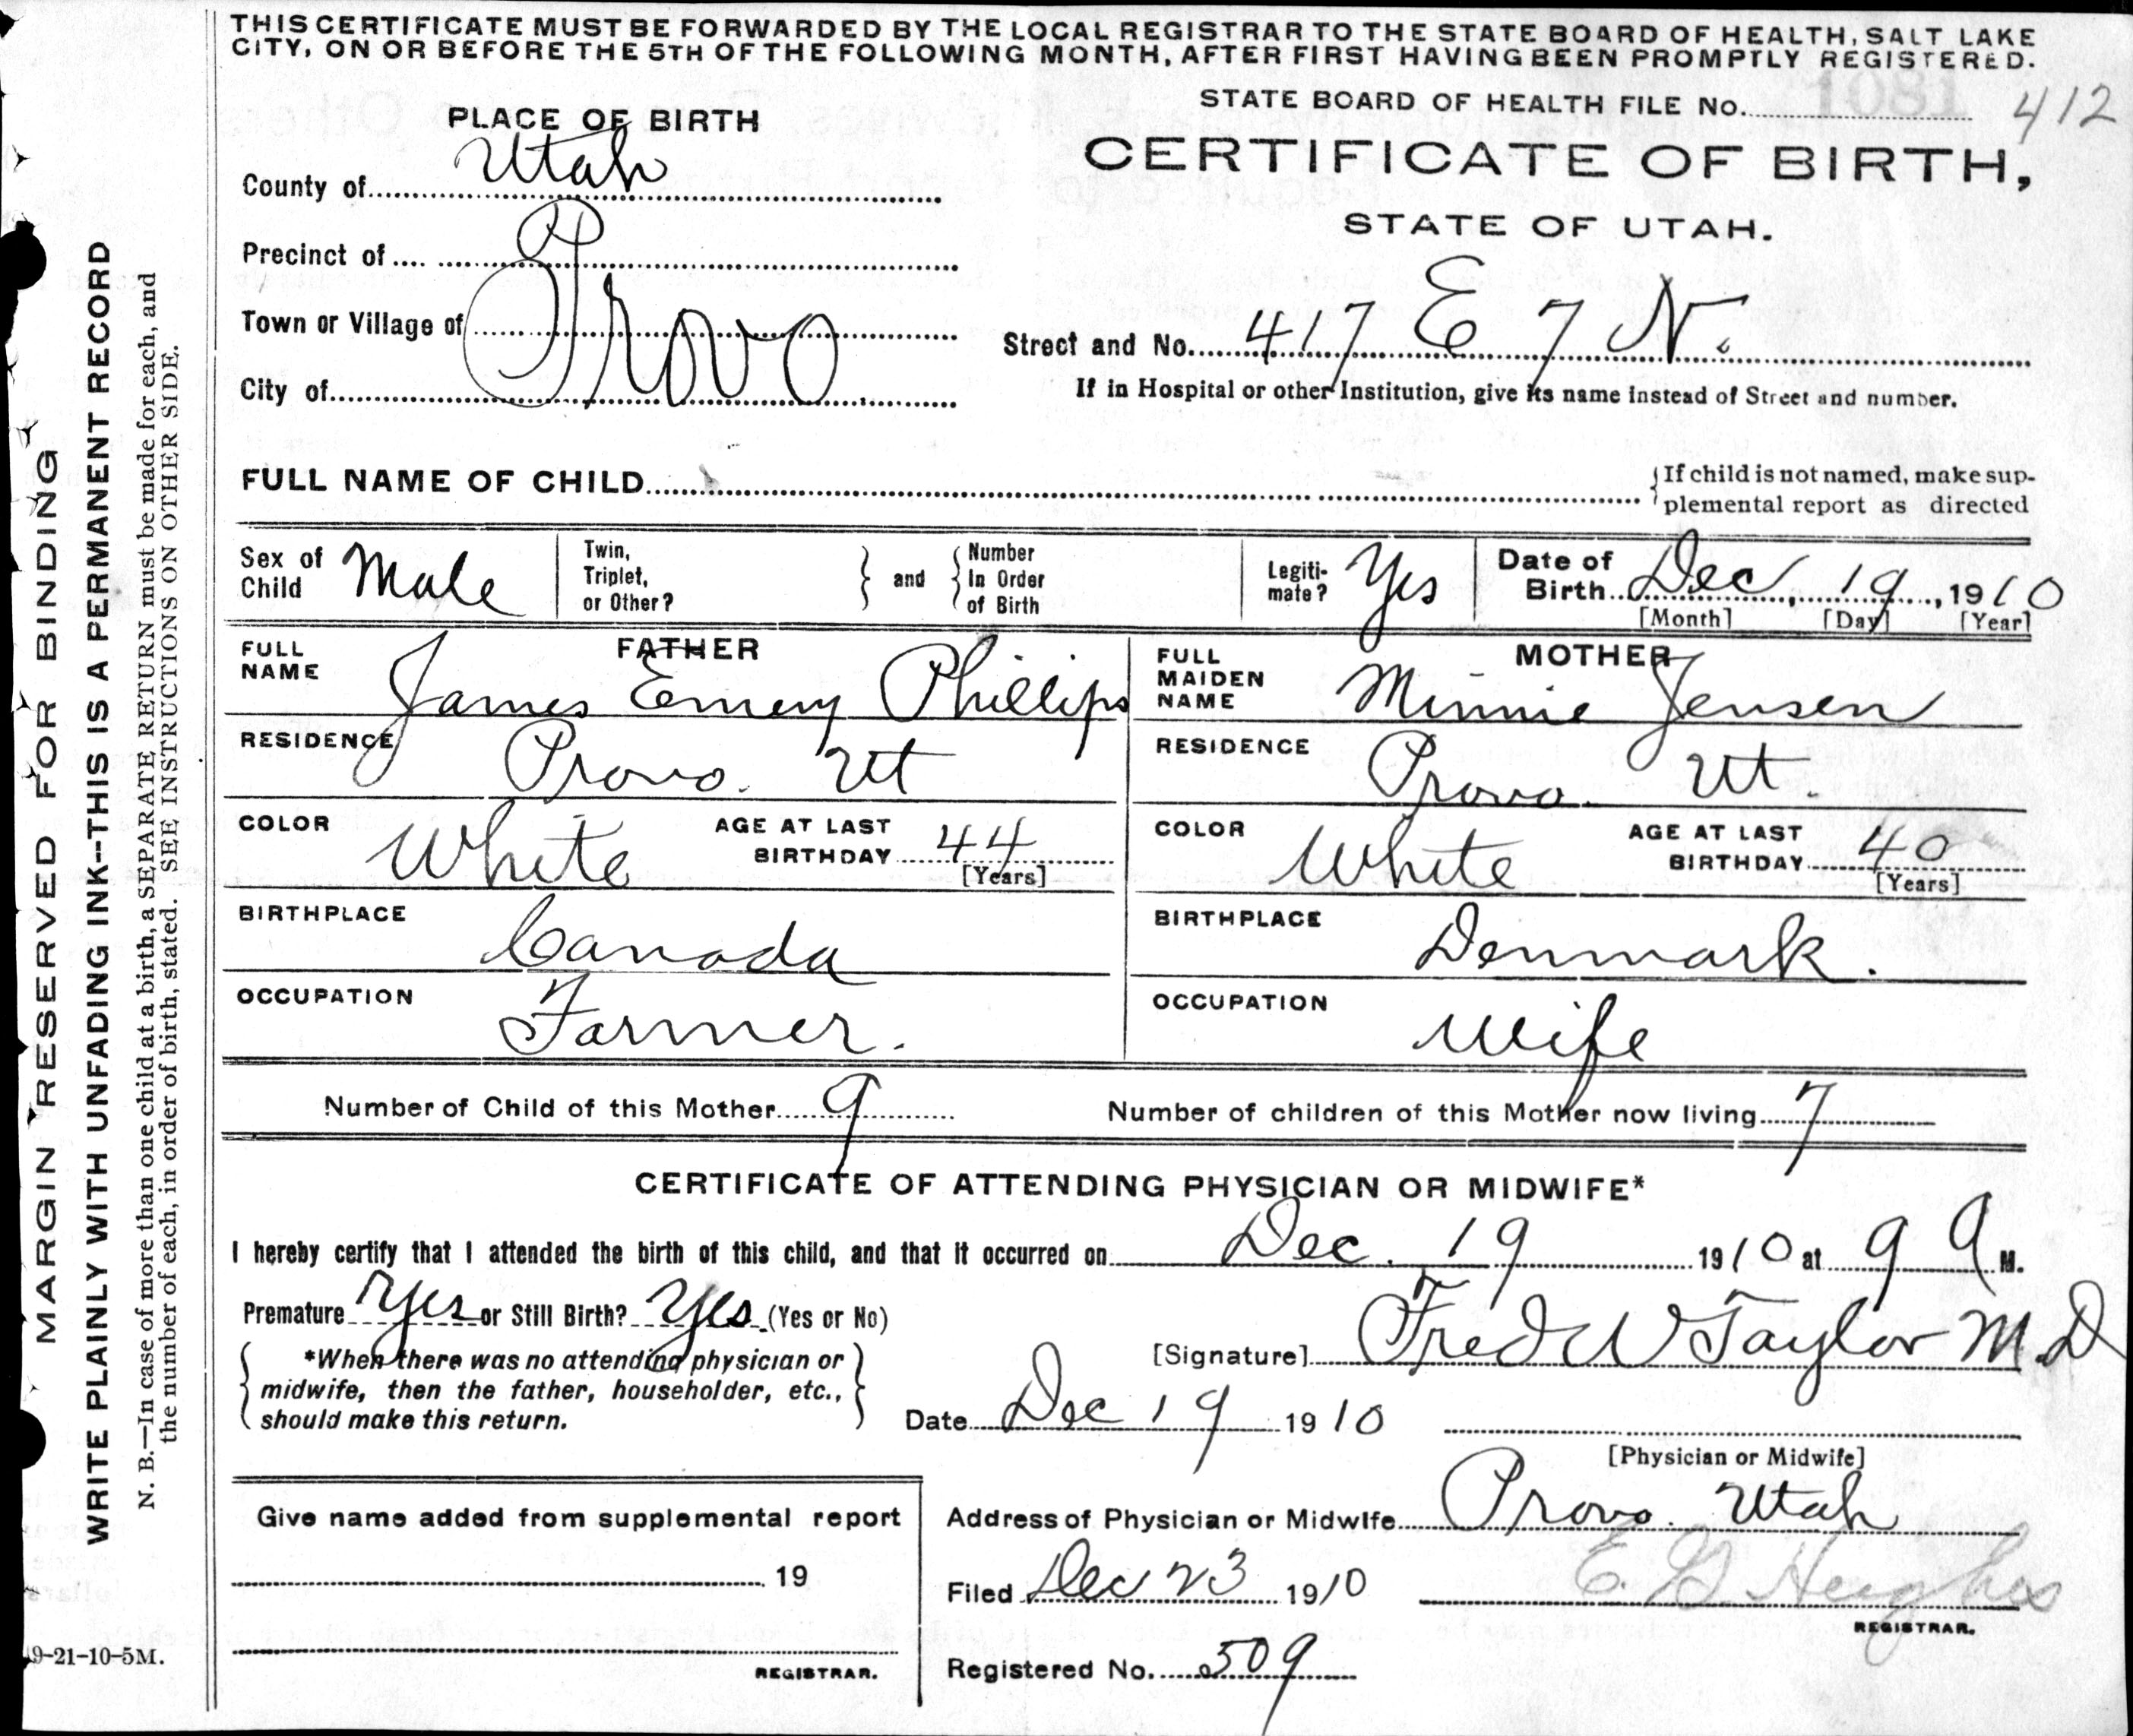 THIS CERTIFICATE MUST BE FORWARDED BY THE LOCAL REGISTRAR TO THE STATE BOARD OF HEALTH, SALT LAKE
CITY, ON OR BEFORE THE 5TH OF THE FOLLOWING MONTH, AFTER FIRST HAVING BEEN PROMPTLY REGISTERED.
STATE BOARD OF HEALTH FILE No. 1081 412
PLACE OF BIRTH
CERTIFICATE OF BIRTH,
STATE OF UTAH.
County of Utah
Precinct of
Town or Village of Provo
City of
Street and No. 417 E 7 N.
If in Hospital or other Institution, give its name instead of Street and number.
FULL NAME OF CHILD
If child is not named, make sup-
plemental report as directed
Sex of Child Male
Twin, Triplet, or Other? and Number In Order of Birth
Legiti-mate? Yes
Date of Birth Dec, 19, 1910
[Month] [Day] [Year]
FATHER
FULL NAME James Emery Phillips
RESIDENCE Provo. Ut
COLOR White AGE AT LAST BIRTHDAY 44
[Years]
BIRTHPLACE Canada
OCCUPATION Farmer.
MOTHER
FULL MAIDEN NAME Minnie Jensen
RESIDENCE Provo. Ut.
COLOR White AGE AT LAST BIRTHDAY 40
[Years]
BIRTHPLACE Denmark.
OCCUPATION Wife
Number of Child of this Mother 9 Number of children of this Mother now living 7
CERTIFICATE OF ATTENDING PHYSICIAN OR MIDWIFE*
I hereby certify that I attended the birth of this child, and that it occurred on Dec. 19 1910 at 9 A M.
Premature Yes or Still Birth? Yes (Yes or No)
*When there was no attending physician or
midwife, then the father, householder, etc.,
should make this return.
[Signature] Fred W Taylor M.D
Date Dec 19 1910
[Physician or Midwife]
Give name added from supplemental report
19
REGISTRAR.
Address of Physician or Midwife Provo. Utah
Filed Dec 23 1910 E. G Hughes
REGISTRAR.
Registered No. 509
9-21-10-5M.
MARGIN RESERVED FOR BINDING
WRITE PLAINLY WITH UNFADING INK--THIS IS A PERMANENT RECORD
N. B.—In case of more than one child at a birth, a SEPARATE RETURN must be made for each, and
the number of each, in order of birth, stated. SEE INSTRUCTIONS ON OTHER SIDE.